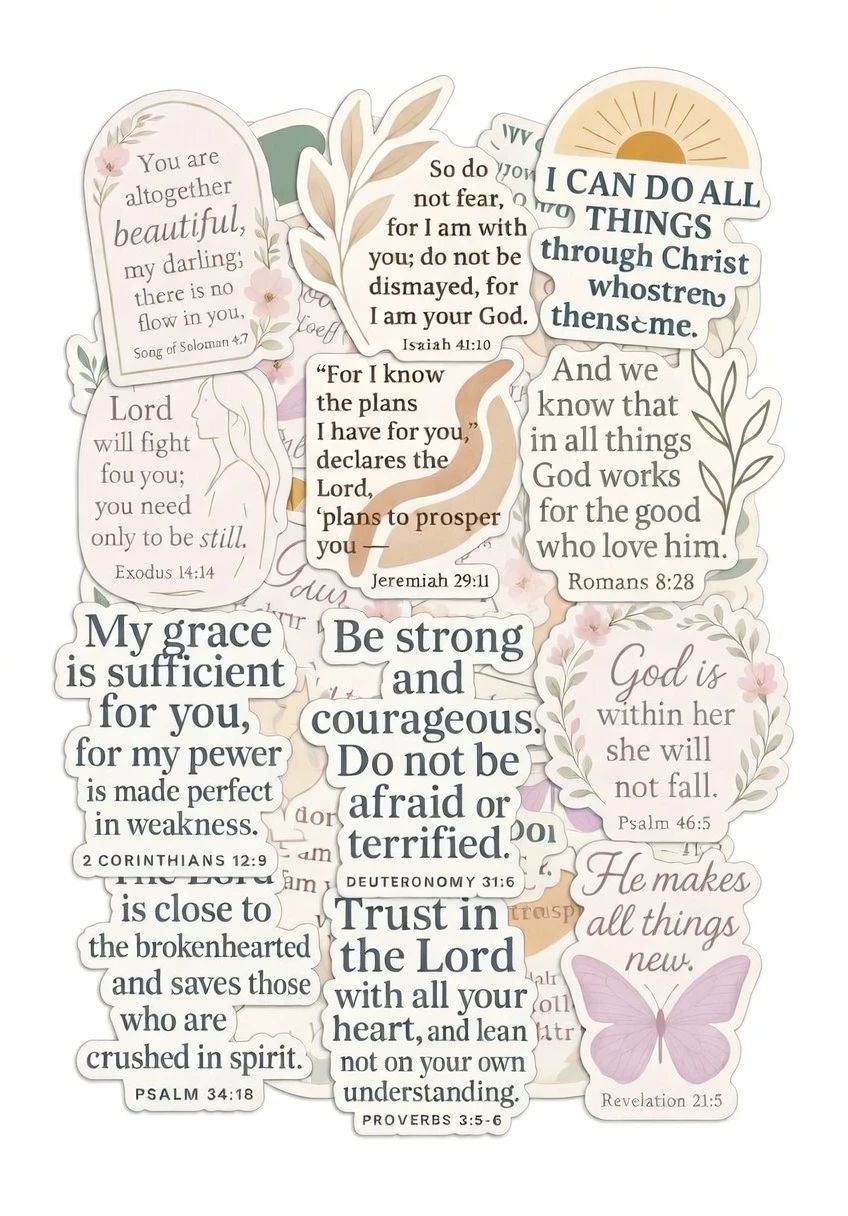 You are
altogether
beautiful,
my darling;
there is no
flow in you,
Song of Soloman 4:7
So do
not fear,
for I am with
you; do not be
dismayed, for
I am your God.
Isaiah 41:10
I CAN DO ALL
THINGS
through Christ
whostren
me.
Lord
will fight
fou you;
you need
only to be still.
Exodus 14:14
“For I know
the plans
I have for you,”
declares the
Lord,
‘plans to prosper
you —
Jeremiah 29:11
And we
know that
in all things
God works
for the good
who love him.
Romans 8:28
My grace
is sufficient
for you,
for my pewer
is made perfect
in weakness.
2 CORINTHIANS 12:9
Be strong
and
courageous.
Do not be
afraid or
terrified.
DEUTERONOMY 31:6
God is
within her
she will
not fall.
Psalm 46:5
The Lord
is close to
the brokenhearted
and saves those
who are
crushed in spirit.
PSALM 34:18
Trust in
the Lord
with all your
heart, and lean
not on your own
understanding.
PROVERBS 3:5-6
He makes
all things
new.
Revelation 21:5